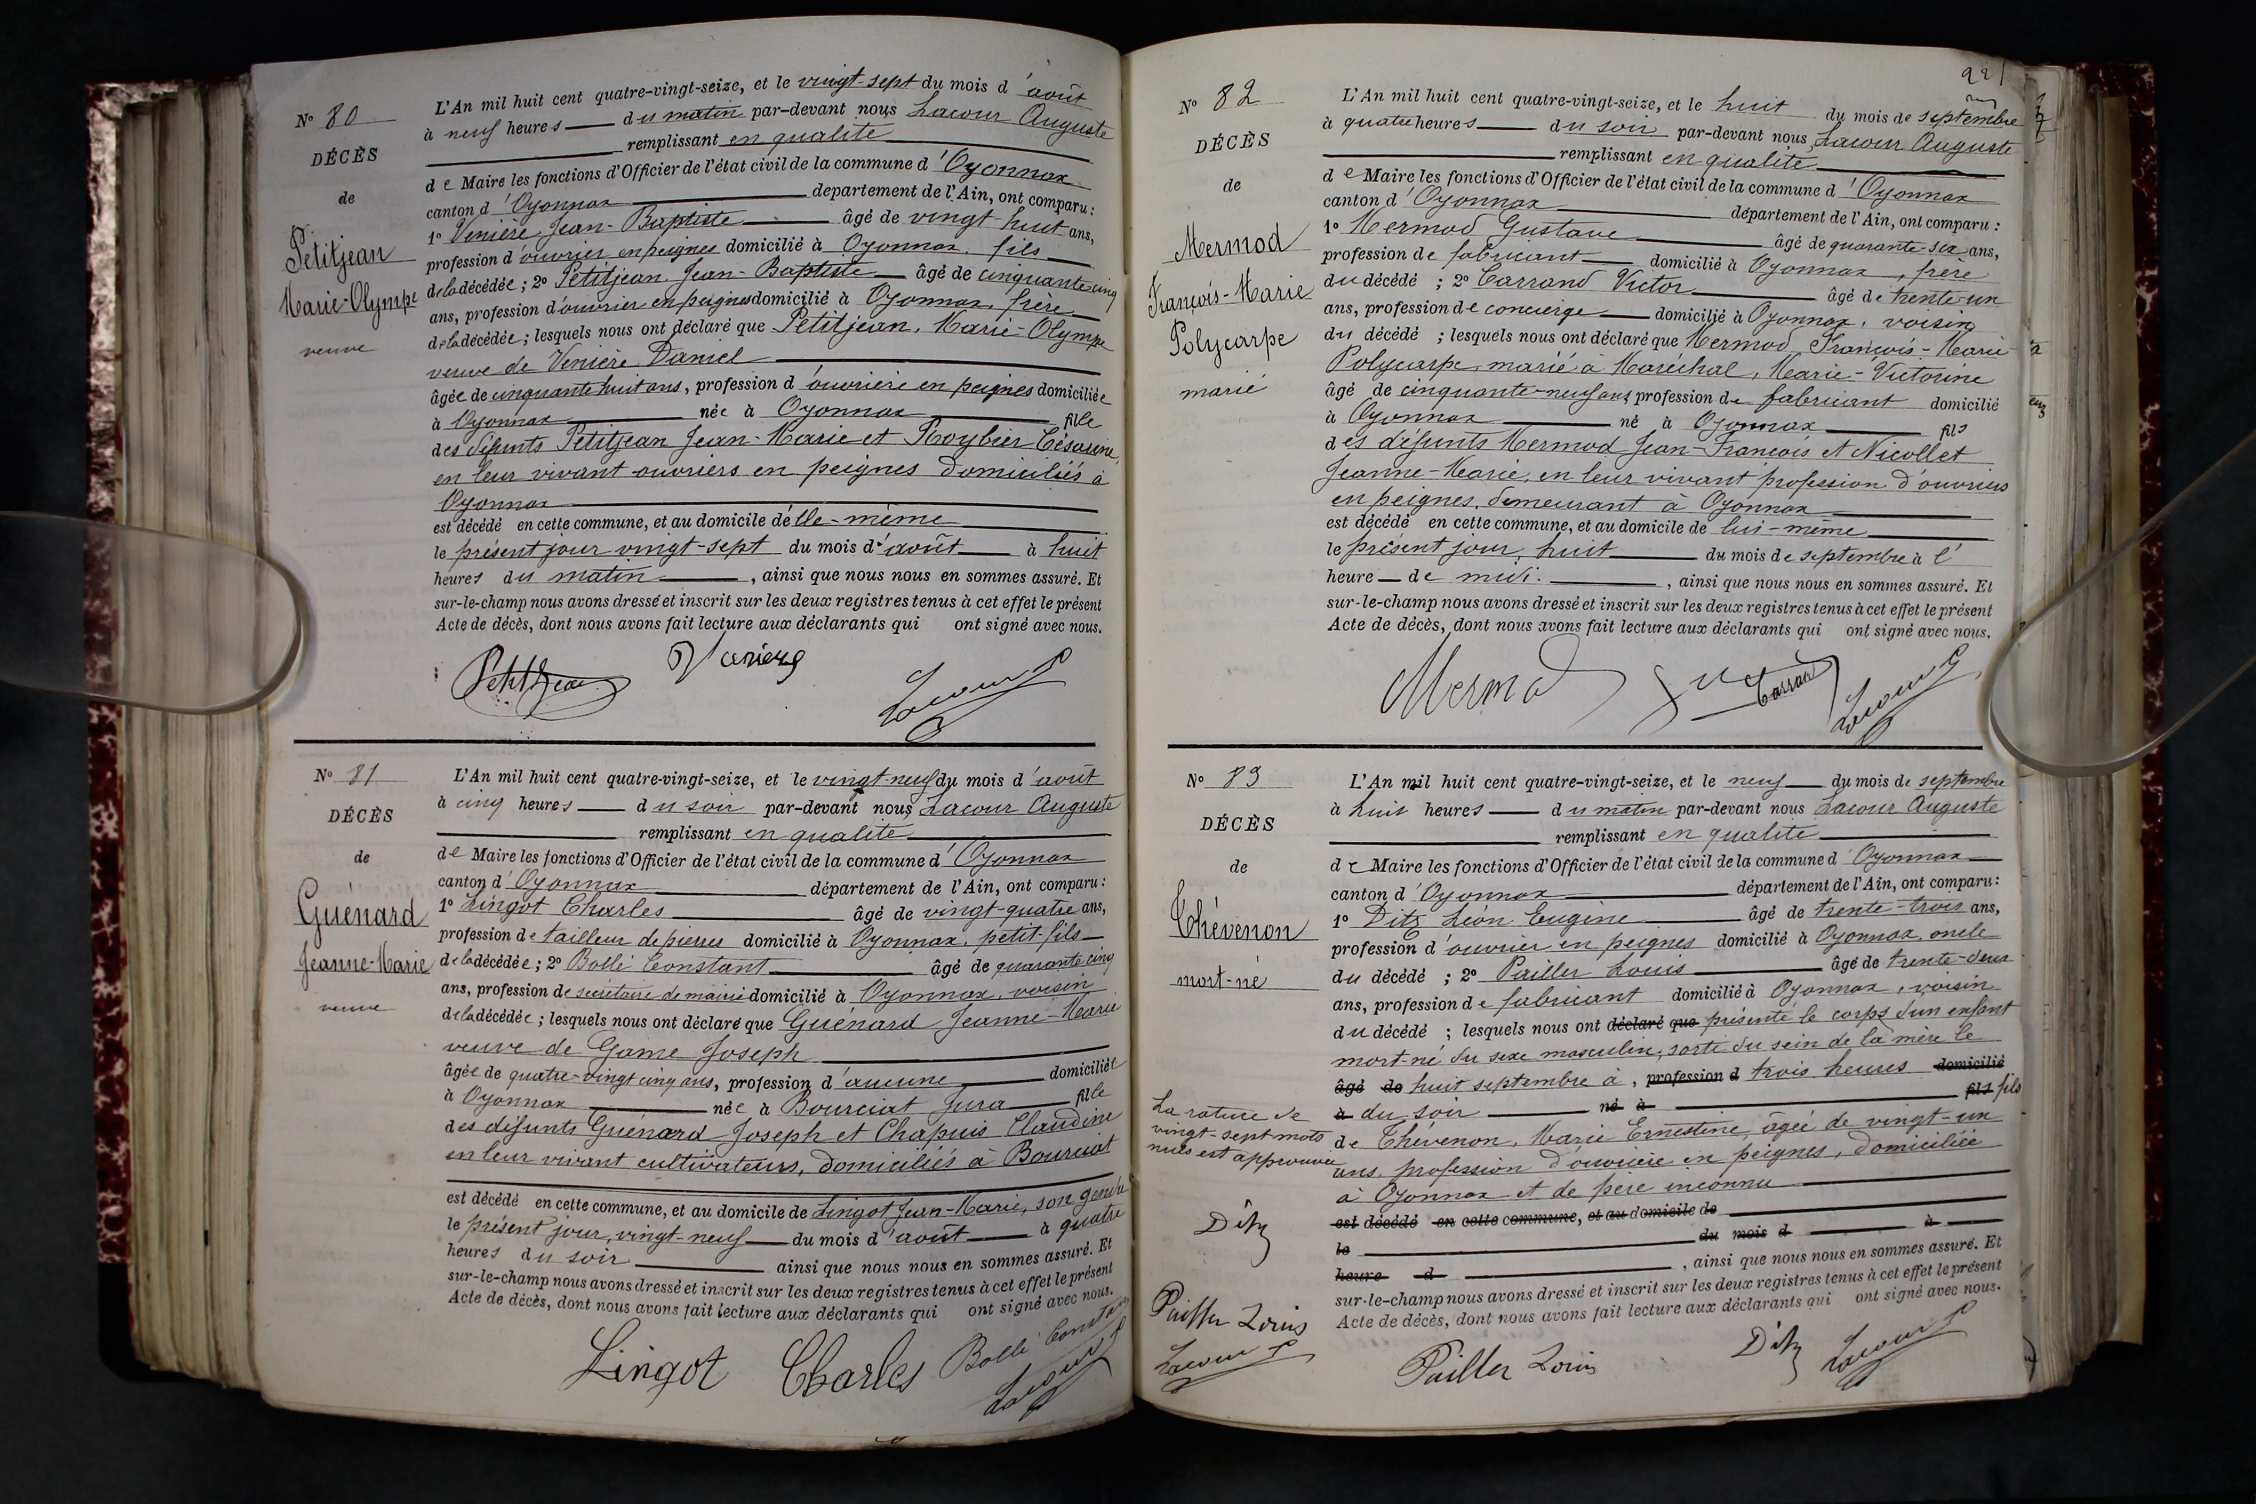 N° 80
DÉCÈS
de
Petitjean
Marie-Olympe
veuve
L'An mil huit cent quatre-vingt-seize, et le vingt-sept du mois d'août
à neuf heures du matin par-devant nous Lacour Auguste
remplissant en qualité
de Maire les fonctions d'Officier de l'état civil de la commune d'Oyonnax
canton d'Oyonnax département de l'Ain, ont comparu :
1° Venière Jean-Baptiste âgé de vingt huit ans,
profession d'ouvrier en peignes domicilié à Oyonnax, fils
de la décédée ; 2° Petitjean Jean-Baptiste âgé de cinquante cinq
ans, profession d'ouvrier en peignes domicilié à Oyonnax, frère
de la décédée ; lesquels nous ont déclaré que Petitjean, Marie-Olympe
veuve de Venière Daniel
âgée de cinquante huit ans, profession d'ouvrière en peignes domiciliée
à Oyonnax née à Oyonnax fille
des défunts Petitjean Jean-Marie et Roybier Césarine,
en leur vivant ouvriers en peignes domiciliés à
Oyonnax
est décédé en cette commune, et au domicile d'elle-même
le présent jour vingt-sept du mois d'août à huit
heures du matin, ainsi que nous nous en sommes assuré. Et
sur-le-champ nous avons dressé et inscrit sur les deux registres tenus à cet effet le présent
Acte de décès, dont nous avons fait lecture aux déclarants qui ont signé avec nous.
Petitjean Veniere Lacour
N° 81
DÉCÈS
de
Guénard
Jeanne-Marie
veuve
L'An mil huit cent quatre-vingt-seize, et le vingt-neuf du mois d'août
à cinq heures du soir par-devant nous Lacour Auguste
remplissant en qualité
de Maire les fonctions d'Officier de l'état civil de la commune d'Oyonnax
canton d'Oyonnax département de l'Ain, ont comparu :
1° Lingot Charles âgé de vingt-quatre ans,
profession de tailleur de pierres domicilié à Oyonnax, petit-fils
de la décédée ; 2° Bollé Constant âgé de quarante cinq
ans, profession de secrétaire de mairie domicilié à Oyonnax, voisin
de la décédée ; lesquels nous ont déclaré que Guénard Jeanne-Marie
veuve de Game Joseph
âgée de quatre-vingt cinq ans, profession d'aucune domiciliée
à Oyonnax née à Bourciat Jura fille
des défunts Guénard Joseph et Chapuis Claudine
en leur vivant cultivateurs, domiciliés à Bourciat
est décédé en cette commune, et au domicile de Lingot Jean-Marie, son gendre
le présent jour, vingt-neuf du mois d'août à quatre
heures du soir ainsi que nous nous en sommes assuré. Et
sur-le-champ nous avons dressé et inscrit sur les deux registres tenus à cet effet le présent
Acte de décès, dont nous avons fait lecture aux déclarants qui ont signé avec nous.
Lingot Charles Bollé Constant
Lacour
221
N° 82
DÉCÈS
de
Mermod
François-Marie
Polycarpe
marié
L'An mil huit cent quatre-vingt-seize, et le huit du mois de septembre
à quatre heures du soir par-devant nous, Lacour Auguste
remplissant en qualité
de Maire les fonctions d'Officier de l'état civil de la commune d'Oyonnax
canton d'Oyonnax département de l'Ain, ont comparu :
1° Mermod Gustave âgé de quarante-six ans,
profession de fabricant domicilié à Oyonnax, frère
du décédé ; 2° Carrand Victor âgé de trente-un
ans, profession de concierge domicilié à Oyonnax, voisin
du décédé ; lesquels nous ont déclaré que Mermod François-Marie
Polycarpe, marié à Maréchal, Marie-Victorine
âgé de cinquante-neuf ans profession de fabricant domicilié
à Oyonnax né à Oyonnax fils
des défunts Mermod Jean-François et Nicollet
Jeanne-Marie, en leur vivant profession d'ouvriers
en peignes, demeurant à Oyonnax
est décédé en cette commune, et au domicile de lui-même
le présent jour, huit du mois de septembre à l'
heure de midi, ainsi que nous nous en sommes assuré. Et
sur-le-champ nous avons dressé et inscrit sur les deux registres tenus à cet effet le présent
Acte de décès, dont nous avons fait lecture aux déclarants qui ont signé avec nous.
Mermod Gve Carrand Lacour
N° 83
DÉCÈS
de
Thévenon
mort-né
L'An mil huit cent quatre-vingt-seize, et le neuf du mois de septembre
à huit heures du matin par-devant nous Lacour Auguste
remplissant en qualité
de Maire les fonctions d'Officier de l'état civil de la commune d'Oyonnax
canton d'Oyonnax département de l'Ain, ont comparu :
1° Ditz Léon Eugène âgé de trente-trois ans,
profession d'ouvrier en peignes domicilié à Oyonnax, oncle
du décédé ; 2° Pailler Louis âgé de trente-deux
ans, profession de fabricant domicilié à Oyonnax, voisin
du décédé ; lesquels nous ont déclaré que présenté le corps d'un enfant
mort-né du sexe masculin, sorti du sein de la mère le
âgé de huit septembre à, profession d trois heures domicilié
à du soir né à fils fils
de Thévenon, Marie Ernestine, âgée de vingt-un
ans, profession d'ouvrière en peignes, domiciliée
à Oyonnax et de père inconnu
est décédé en cette commune, et au domicile de
le du mois d à
heure d, ainsi que nous nous en sommes assuré. Et
sur-le-champ nous avons dressé et inscrit sur les deux registres tenus à cet effet le présent
Acte de décès, dont nous avons fait lecture aux déclarants qui ont signé avec nous.
La rature de
vingt-sept mots
nuls est approuvée
Ditz
Pailler Louis
Lacour
Pailler Louis Ditz Lacour